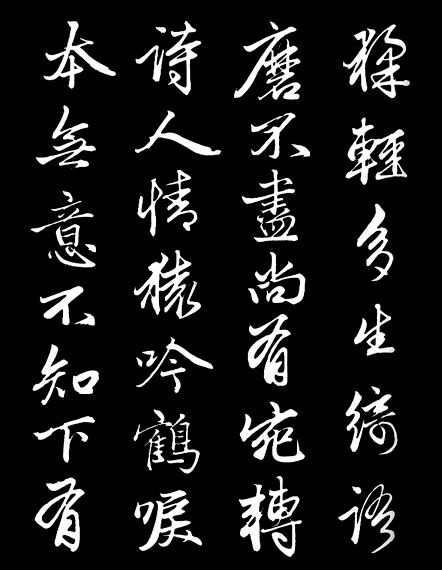 猱輕多生綺語
磨不盡尚有宛轉
詩人情猿吟鶴唳
本無意不知下有